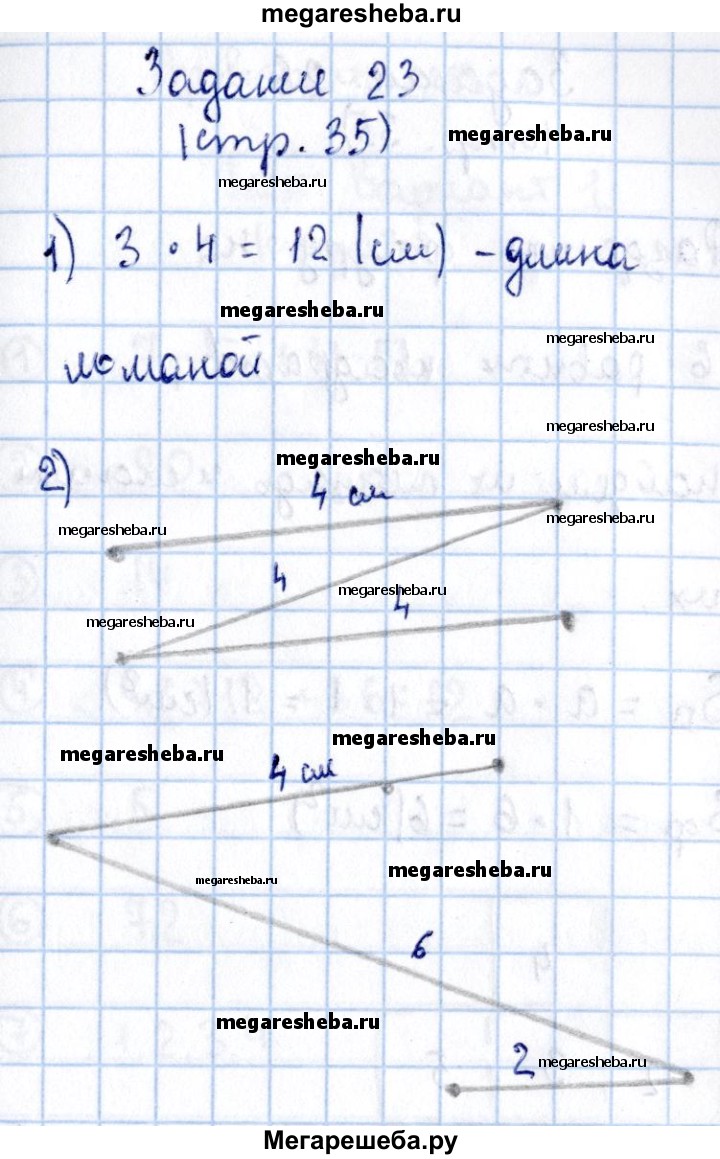 megaresheba.ru
Задание 23
(стр. 35)
megaresheba.ru
megaresheba.ru
1) 3 · 4 = 12 (см) - длина
megaresheba.ru
megaresheba.ru
ломаной
megaresheba.ru
2)
megaresheba.ru
4 см
megaresheba.ru
megaresheba.ru
4
megaresheba.ru
4
megaresheba.ru
megaresheba.ru
megaresheba.ru
4 см
megaresheba.ru
megaresheba.ru
6
megaresheba.ru
2
megaresheba.ru
Мегарешеба.ру